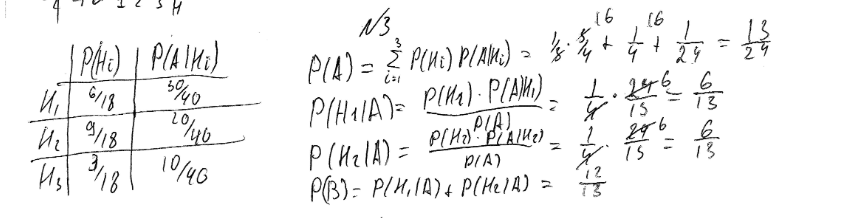 N3
P(Hi) P(A|Hi)
H1 6/18 30/40
H2 9/18 20/40
H3 3/18 10/40
P(A) = Σ i=1 3 P(Hi) P(A|Hi) = 1/3 · 3/4 + 1/4 + 1/24 = 13/24
P(H1|A) = P(H1) · P(A|H1) / P(A) = 1/4 · 24 6/13 = 6/13
P(H2|A) = P(H2) · P(A|H2) / P(A) = 1/4 · 24 6/13 = 6/13
P(B) = P(H1|A) + P(H2|A) = 12/13